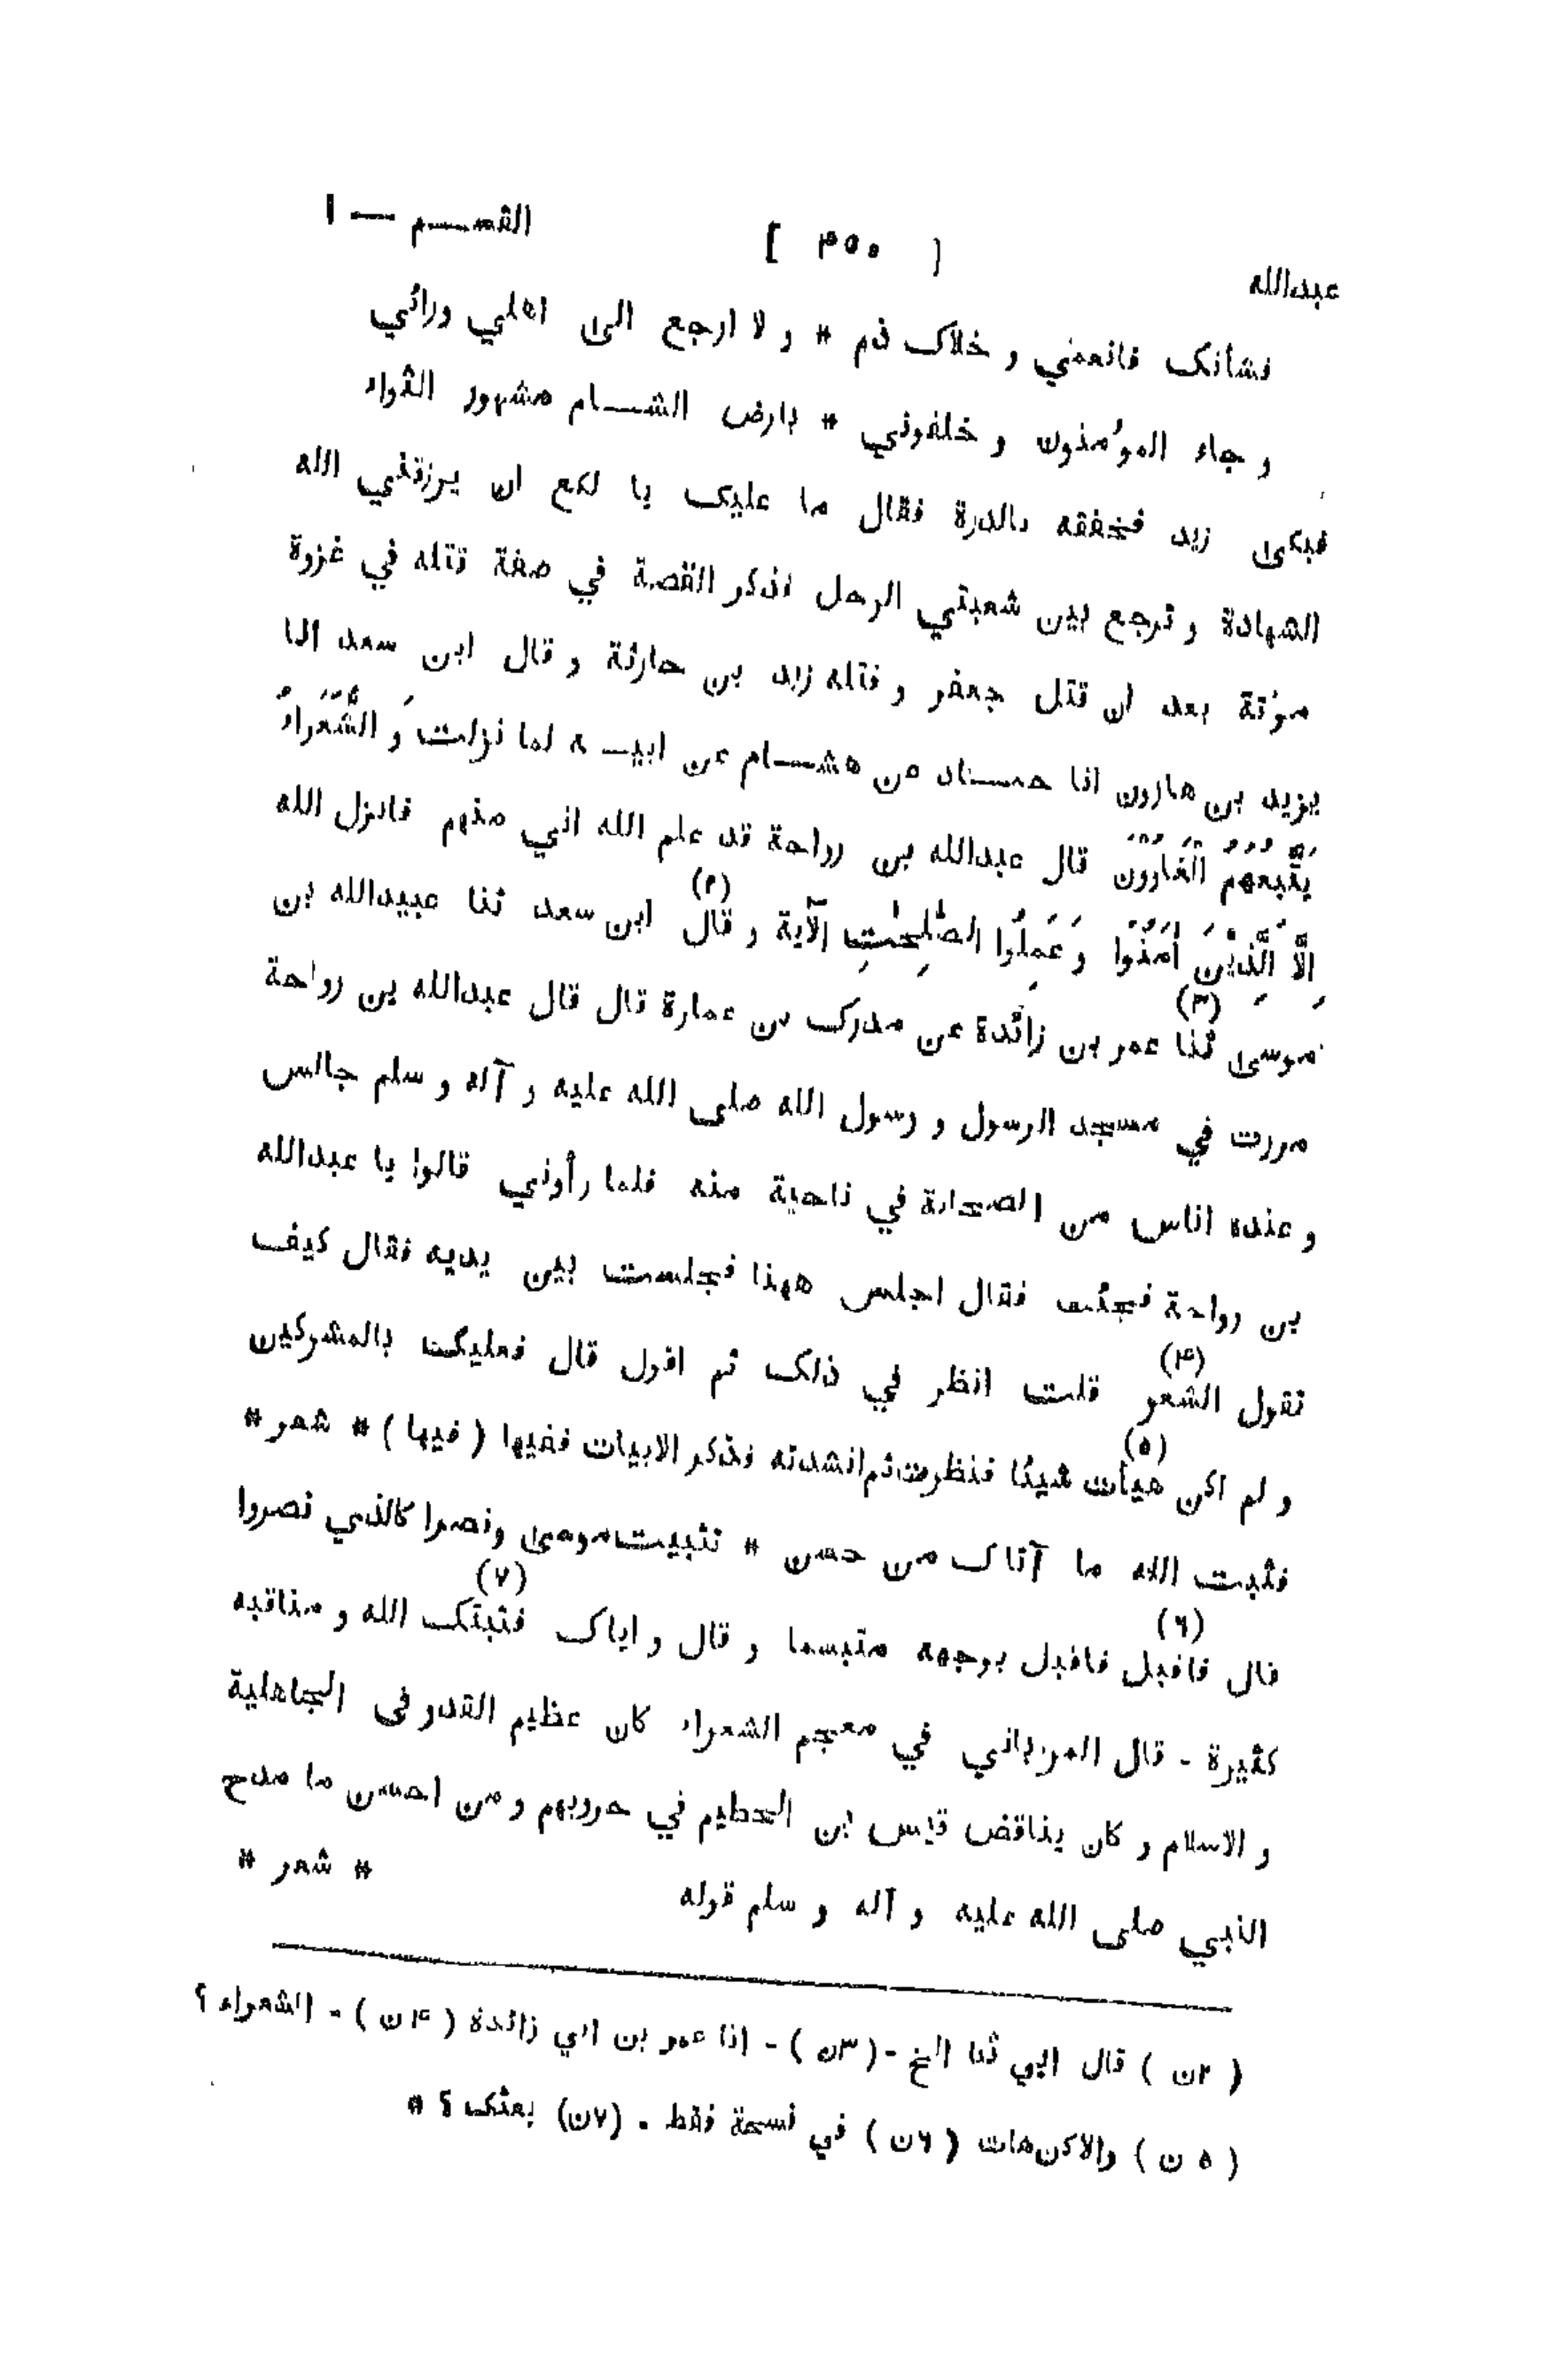 عبدالله [ ٧٥٠ ] القســـم — ١
فشأنك فانعمني و خلاك ذم * و لا ارجع الى اهلي ورائي
و جاء المؤمنون و خلفوني * بارض الشـــام مشهور الثواء
فبكى زيد فخفقه بالدرة فقال ما عليك يا لكع ان يرزقني الله
الشهادة و ترجع بين شعبتي الرحل فذكر القصة في صفة قتله في غزوة
مؤتة بعد ان قتل جعفر و قتله زيد بن حارثة و قال ابن سعد انا
يزيد بن هارون انا حمـــاد عن هشـــام عن ابيـــه لما نزلت وَ الشُّعَرَاءُ
يَتَّبِعُهُمُ الْغَاوُونَ قال عبدالله بن رواحة قد علم الله اني منهم فانزل الله
اِلَّا الَّذِيْنَ اٰمَنُوْا وَ عَمِلُوا الصّٰلِحٰتِ الآية و قال (٢) ابن سعد ثنا عبيدالله بن
موسى ثنا (٣) عمر بن زائدة عن مدرك بن عمارة قال قال عبدالله بن رواحة
مررت في مسجد الرسول و رسول الله صلى الله عليه و آله و سلم جالس
و عنده اناس من الصحابة في ناحية منه فلما رأوني قالوا يا عبدالله
بن رواحة فجئت فقال اجلس ههنا فجلست بين يديه فقال كيف
تقول الشعر (۴) قلت انظر في ذلك ثم اقول قال فعليك بالمشركين
و لم اكن هيأت (٥) شيئا فنظرت ثم انشدته فذكر الابيات ففيها ( فيها ) * شعر *
فثبت الله ما آتاك من حسن * تثبيت موسى ونصرا كالذي نصروا
قال فاقبل (٦) فاقبل بوجهه متبسما و قال و اياك فثبتك (٧) الله و مناقبه
كثيرة - قال المرزباني في معجم الشعراء كان عظيم القدر فى الجاهلية
و الاسلام و كان يناقض قيس ابن الخطيم في حروبهم و من احسن ما مدح
النبي صلى الله عليه و آله و سلم قوله * شعر *
( ٢ن ) قال ابي ثنا الخ - ( ٣ن ) - انا عمر بن ابي زائدة ( ۴ن ) - الشعراء ؟
( ٥ ن ) والاكن هات ( ٦ن ) في نسخة فقط - (٧ن) بعثك ؟ *